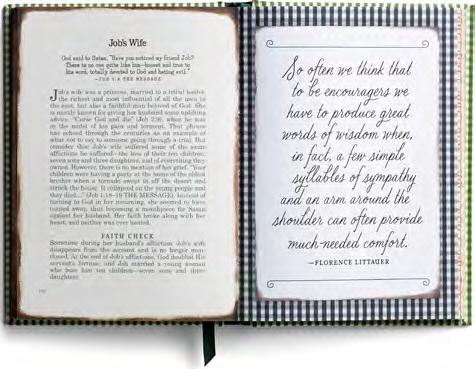 Job's Wife
God said to Satan, "Have you noticed my friend Job?
There is no one quite like him—honest and true to
his word, totally devoted to God and hating evil."
—JOB 1:8 THE MESSAGE
Job's wife was a princess, married to a tribal leader,
the richest and most influential of all the men in
the east, but also a faithful man beloved of God. She
is mostly known for giving her husband some uplifting
advice: "Curse God and die" (Job 2:9), when he was
in the midst of his pain and torment. That phrase
has echoed through the centuries as an example of
what not to say to someone going through a trial. But
consider that Job's wife suffered some of the same
afflictions he suffered—the loss of their ten children,
seven sons and three daughters, and of everything they
owned. However, there is no mention of her grief. "Your
children were having a party at the home of the oldest
brother when a tornado swept in off the desert and
struck the house. It collapsed on the young people and
they died..." (Job 1:18–19 THE MESSAGE). Instead of
turning to God in her mourning, she seemed to have
turned away, thus becoming a mouthpiece for Satan
against her husband. Her faith broke along with her
heart, and neither was ever healed.
FAITH CHECK
Sometime during her husband's affliction, Job's wife
disappears from the account and is no longer men-
tioned. At the end of Job's afflictions, God doubled His
servant's fortune, and Job married a young woman
who bore him ten children—seven sons and three
daughters.
So often we think that
to be encouragers we
have to produce great
words of wisdom when,
in fact, a few simple
syllables of sympathy
and an arm around the
shoulder can often provide
much-needed comfort.
—FLORENCE LITTAUER